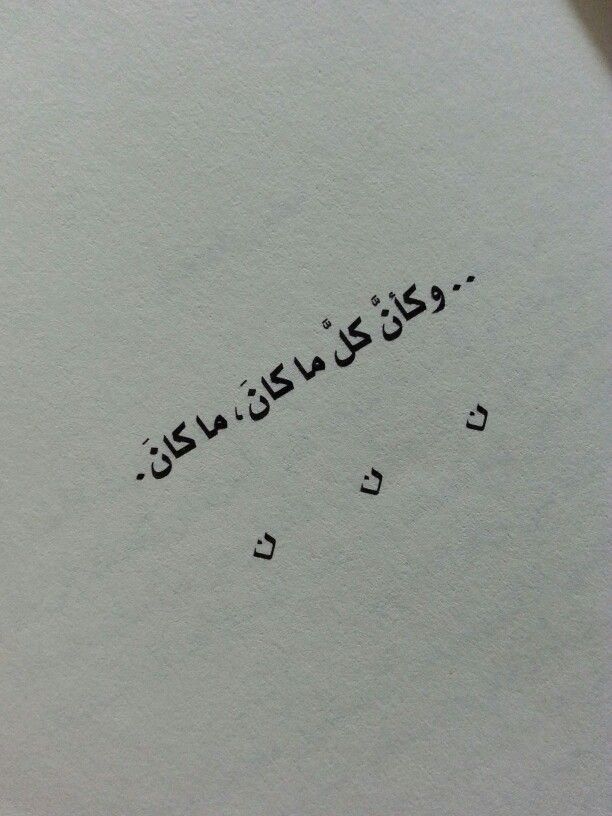 .. وكأنَّ كلَّ ما كانَ، ما كانَ.
ن ن ن